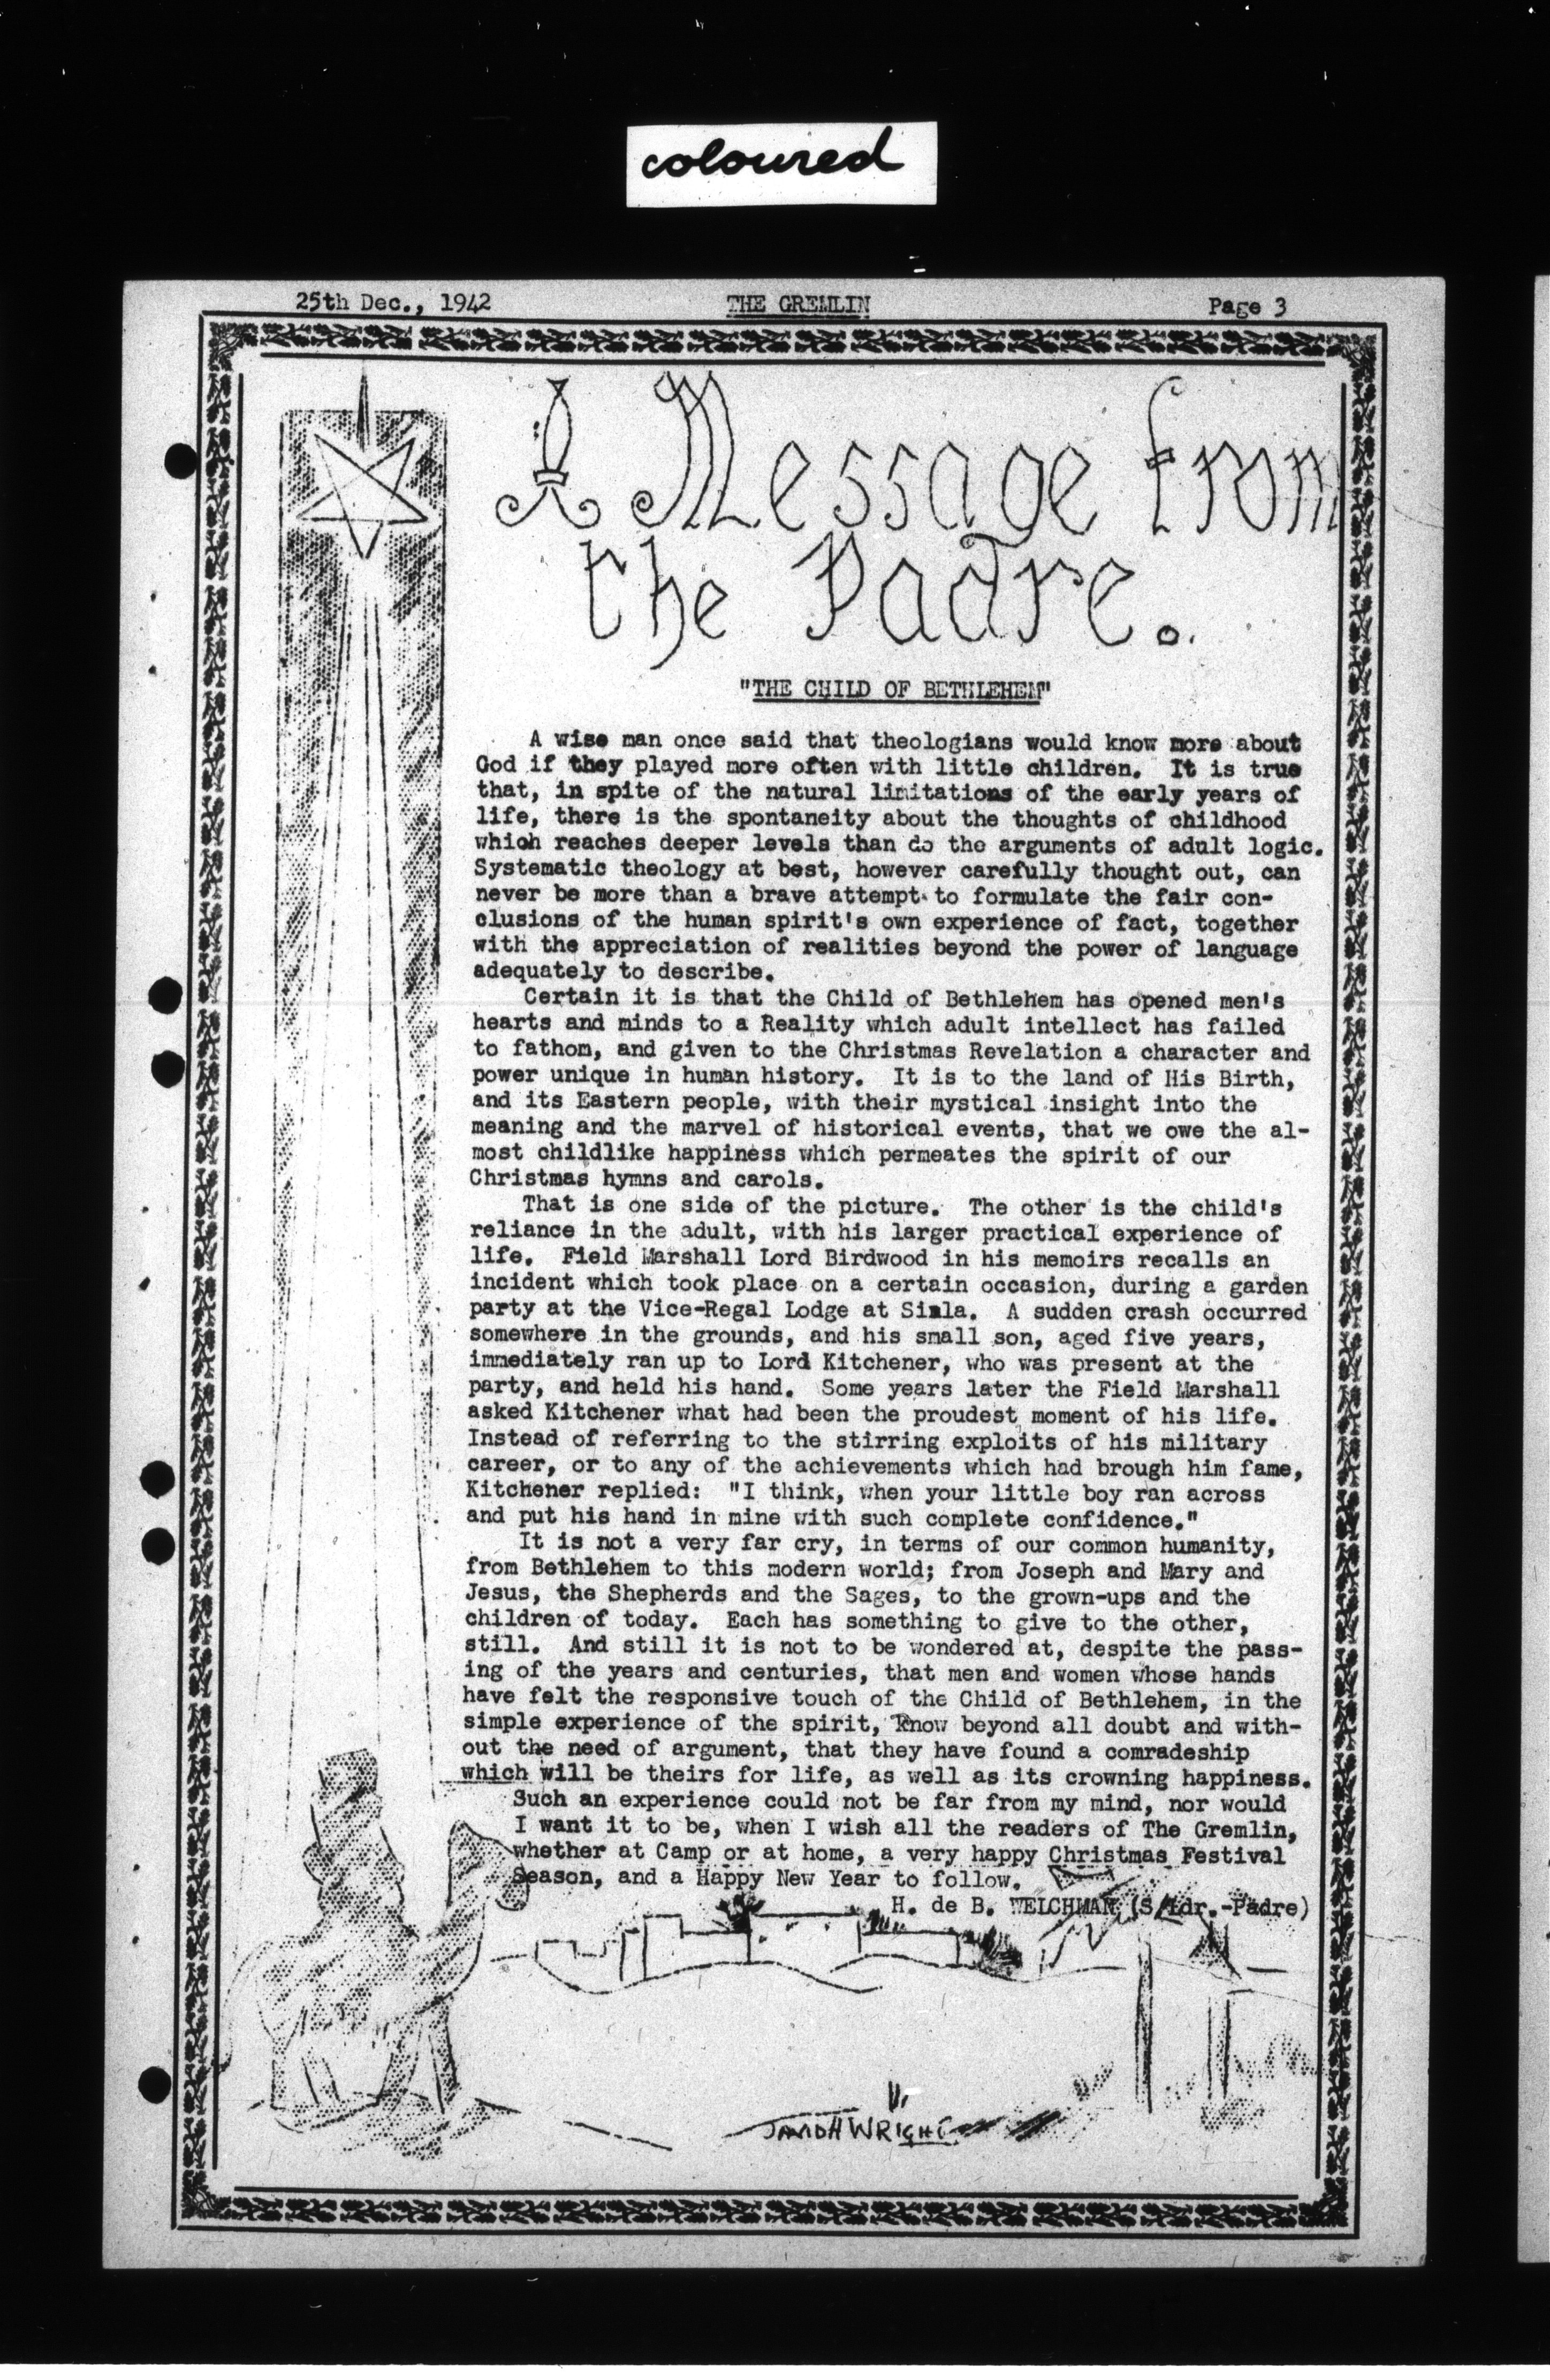 coloured
25th Dec., 1942 THE GREMLIN Page 3
A Message from
the Padre.
"THE CHILD OF BETHLEHEM"
A wise man once said that theologians would know more about
God if they played more often with little children. It is true
that, in spite of the natural limitations of the early years of
life, there is the spontaneity about the thoughts of childhood
which reaches deeper levels than do the arguments of adult logic.
Systematic theology at best, however carefully thought out, can
never be more than a brave attempt to formulate the fair con-
clusions of the human spirit's own experience of fact, together
with the appreciation of realities beyond the power of language
adequately to describe.
Certain it is that the Child of Bethlehem has opened men's
hearts and minds to a Reality which adult intellect has failed
to fathom, and given to the Christmas Revelation a character and
power unique in human history. It is to the land of His Birth,
and its Eastern people, with their mystical insight into the
meaning and the marvel of historical events, that we owe the al-
most childlike happiness which permeates the spirit of our
Christmas hymns and carols.
That is one side of the picture. The other is the child's
reliance in the adult, with his larger practical experience of
life. Field Marshall Lord Birdwood in his memoirs recalls an
incident which took place on a certain occasion, during a garden
party at the Vice-Regal Lodge at Simla. A sudden crash occurred
somewhere in the grounds, and his small son, aged five years,
immediately ran up to Lord Kitchener, who was present at the
party, and held his hand. Some years later the Field Marshall
asked Kitchener what had been the proudest moment of his life.
Instead of referring to the stirring exploits of his military
career, or to any of the achievements which had brough him fame,
Kitchener replied: "I think, when your little boy ran across
and put his hand in mine with such complete confidence."
It is not a very far cry, in terms of our common humanity,
from Bethlehem to this modern world; from Joseph and Mary and
Jesus, the Shepherds and the Sages, to the grown-ups and the
children of today. Each has something to give to the other,
still. And still it is not to be wondered at, despite the pass-
ing of the years and centuries, that men and women whose hands
have felt the responsive touch of the Child of Bethlehem, in the
simple experience of the spirit, know beyond all doubt and with-
out the need of argument, that they have found a comradeship
which will be theirs for life, as well as its crowning happiness.
Such an experience could not be far from my mind, nor would
I want it to be, when I wish all the readers of The Gremlin,
whether at Camp or at home, a very happy Christmas Festival
Season, and a Happy New Year to follow.
H. de B. WELCHMAN (S/Ldr.-Padre)
DAVID H WRIGHT